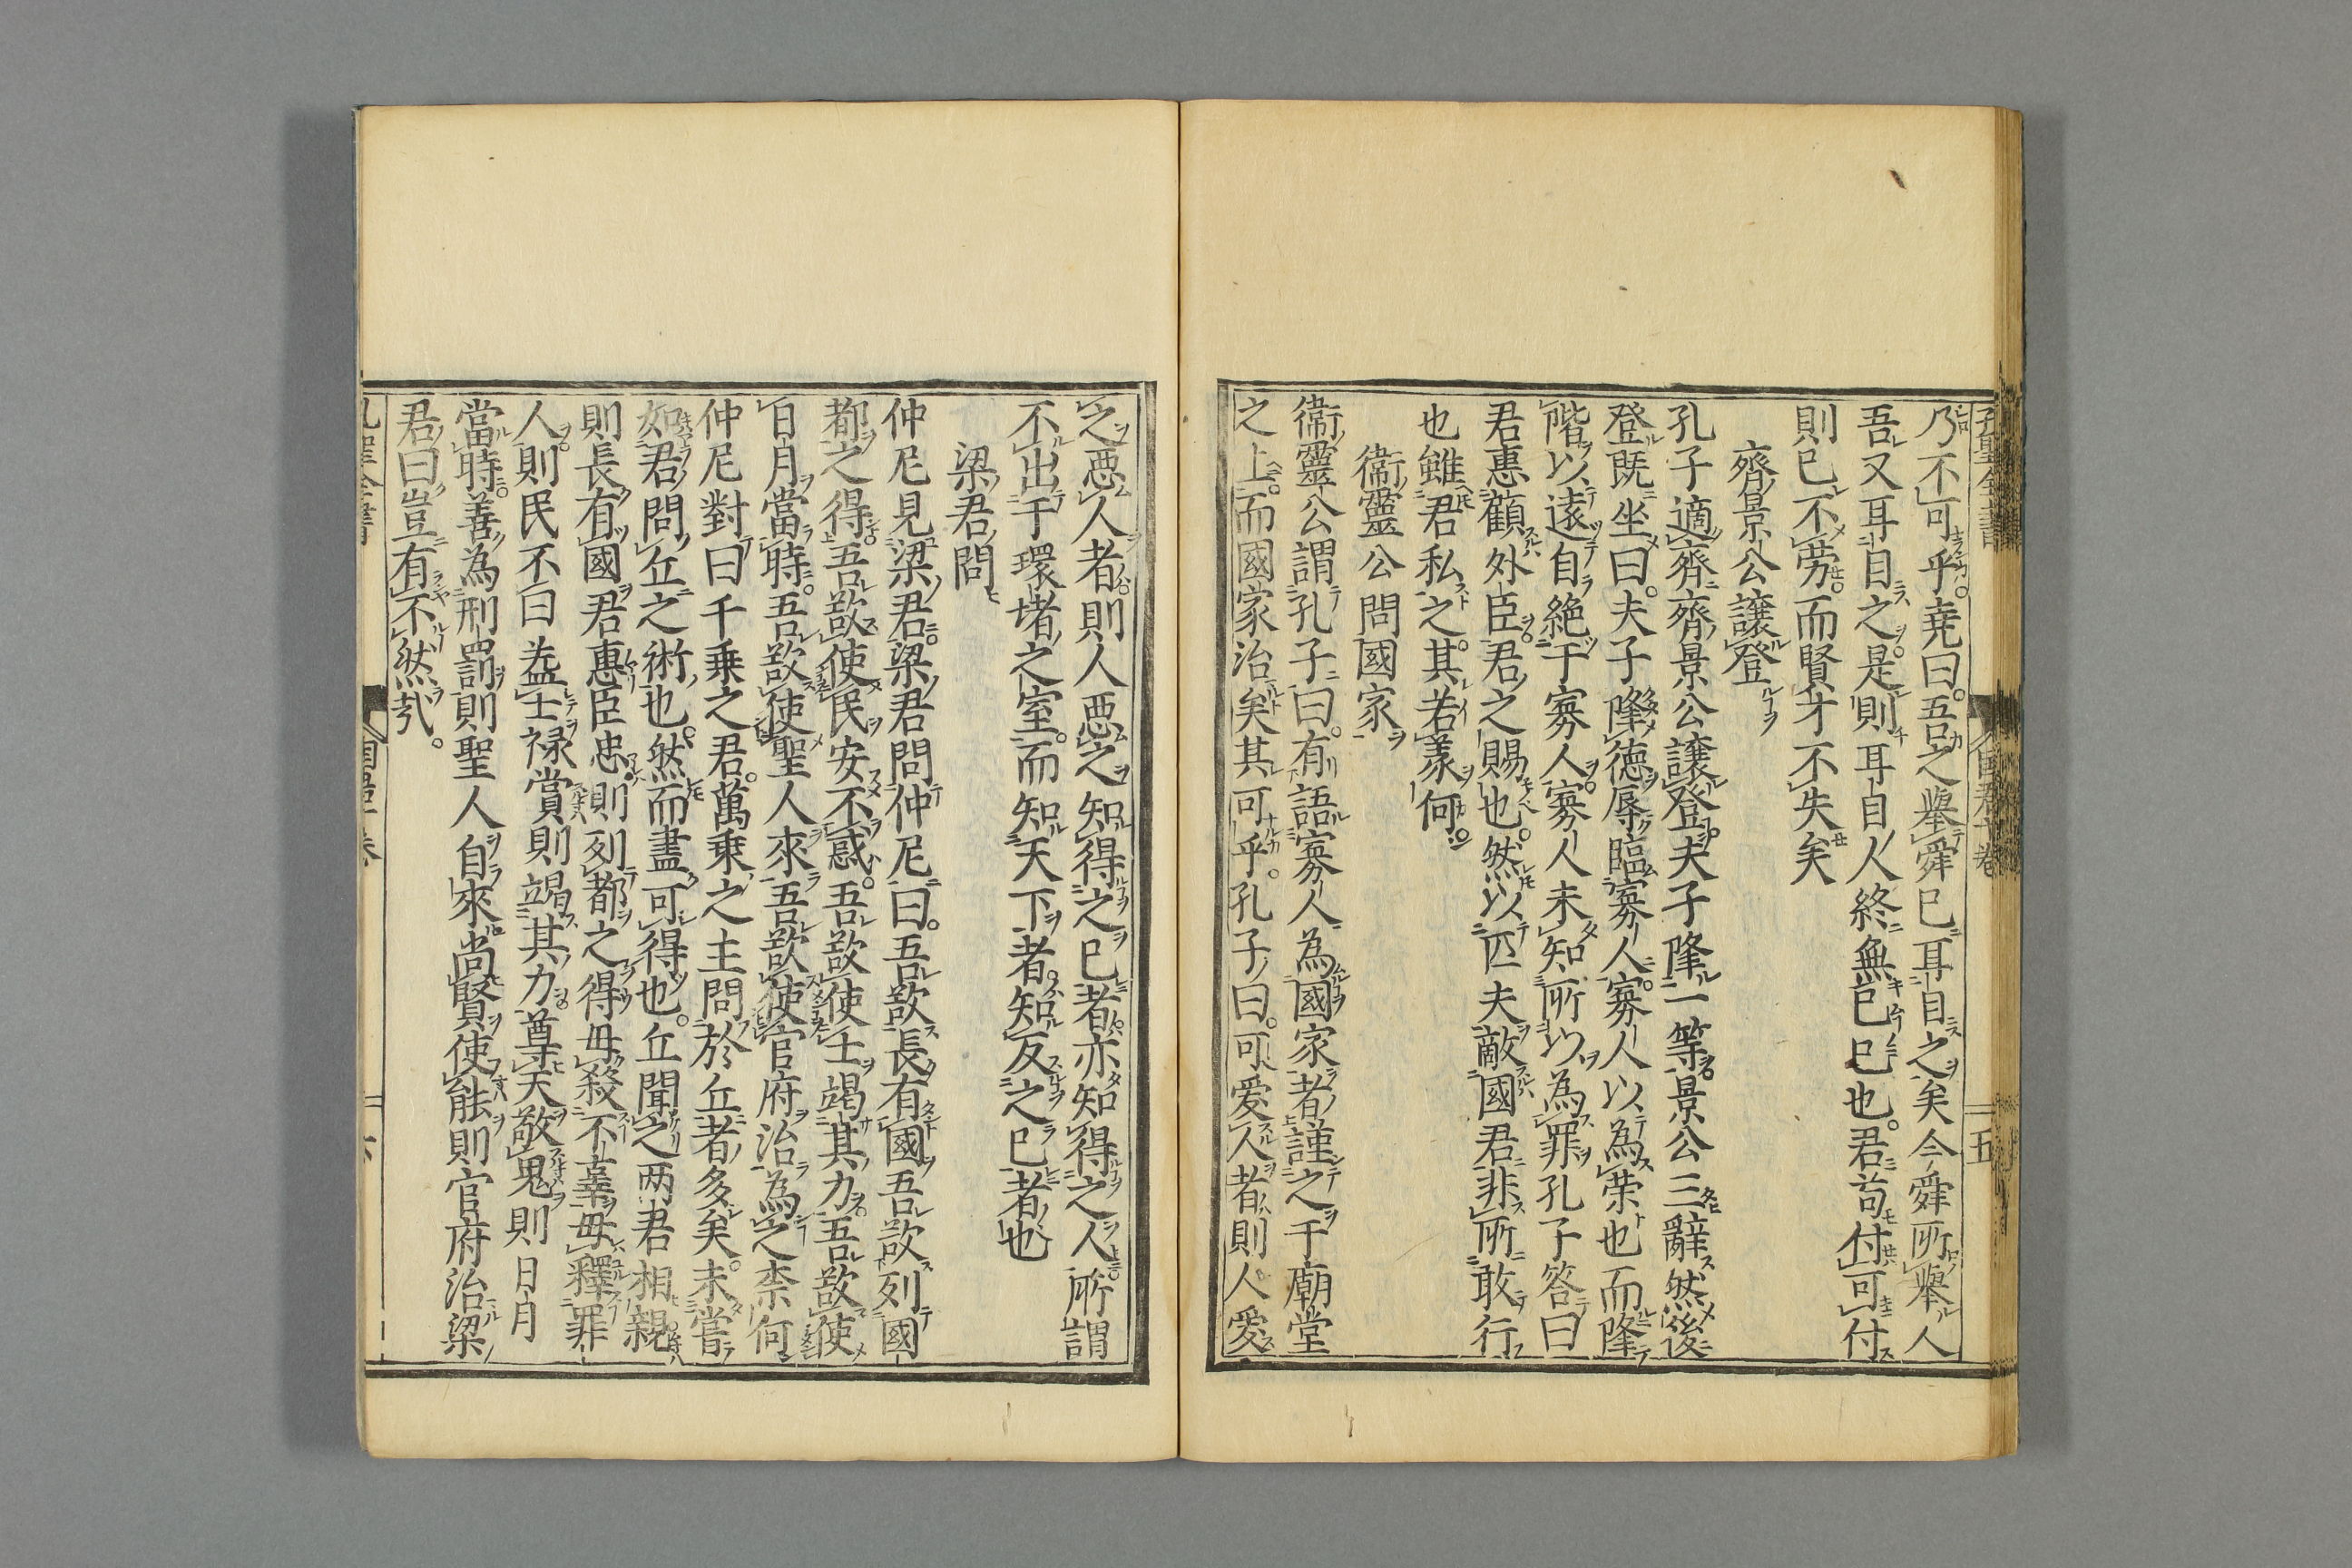 乃不可乎堯曰吾之舉舜已耳目之矣今舜所舉人
吾又耳目之是則耳目人終無已已也君苟付可付
則已不勞而賢才不失矣
齊景公讓登
孔子適齊齊景公讓登夫子隆一等景公三辭然後
登既坐曰夫子隆德辱臨寡人寡人以為榮也而隆
階以遠自絕于寡人寡人未知所以為罪孔子答曰
君惠顧外臣君之賜也然以匹夫敵國君非所敢行
也雖君私之其若義何
衞靈公問國家
衞靈公謂孔子曰有語寡人為國家者謹之于廟堂
之上而國家治矣其可乎孔子曰可愛人者則人愛
之惡人者則人惡之知得之已者亦知得之人所謂
不出于環堵之室而知天下者知反之已者也
梁君問
仲尼見梁君梁君問仲尼曰吾欲長有國吾欲列國
都之得吾欲使民安不惑吾欲使士竭其力吾欲使
日月當時吾欲使聖人來吾欲使官府治為之柰何
仲尼對曰千乘之君萬乘之主問於丘者多矣未嘗
如君問丘之術也然而盡可得也丘聞之两君相親
則長有國君惠臣忠則列都之得毋殺不辜毋釋罪
人則民不曰益士禄賞則竭其力尊天敬鬼則日月
當時善為刑罰則聖人自來尚賢使能則官府治梁
君曰豈有不然哉